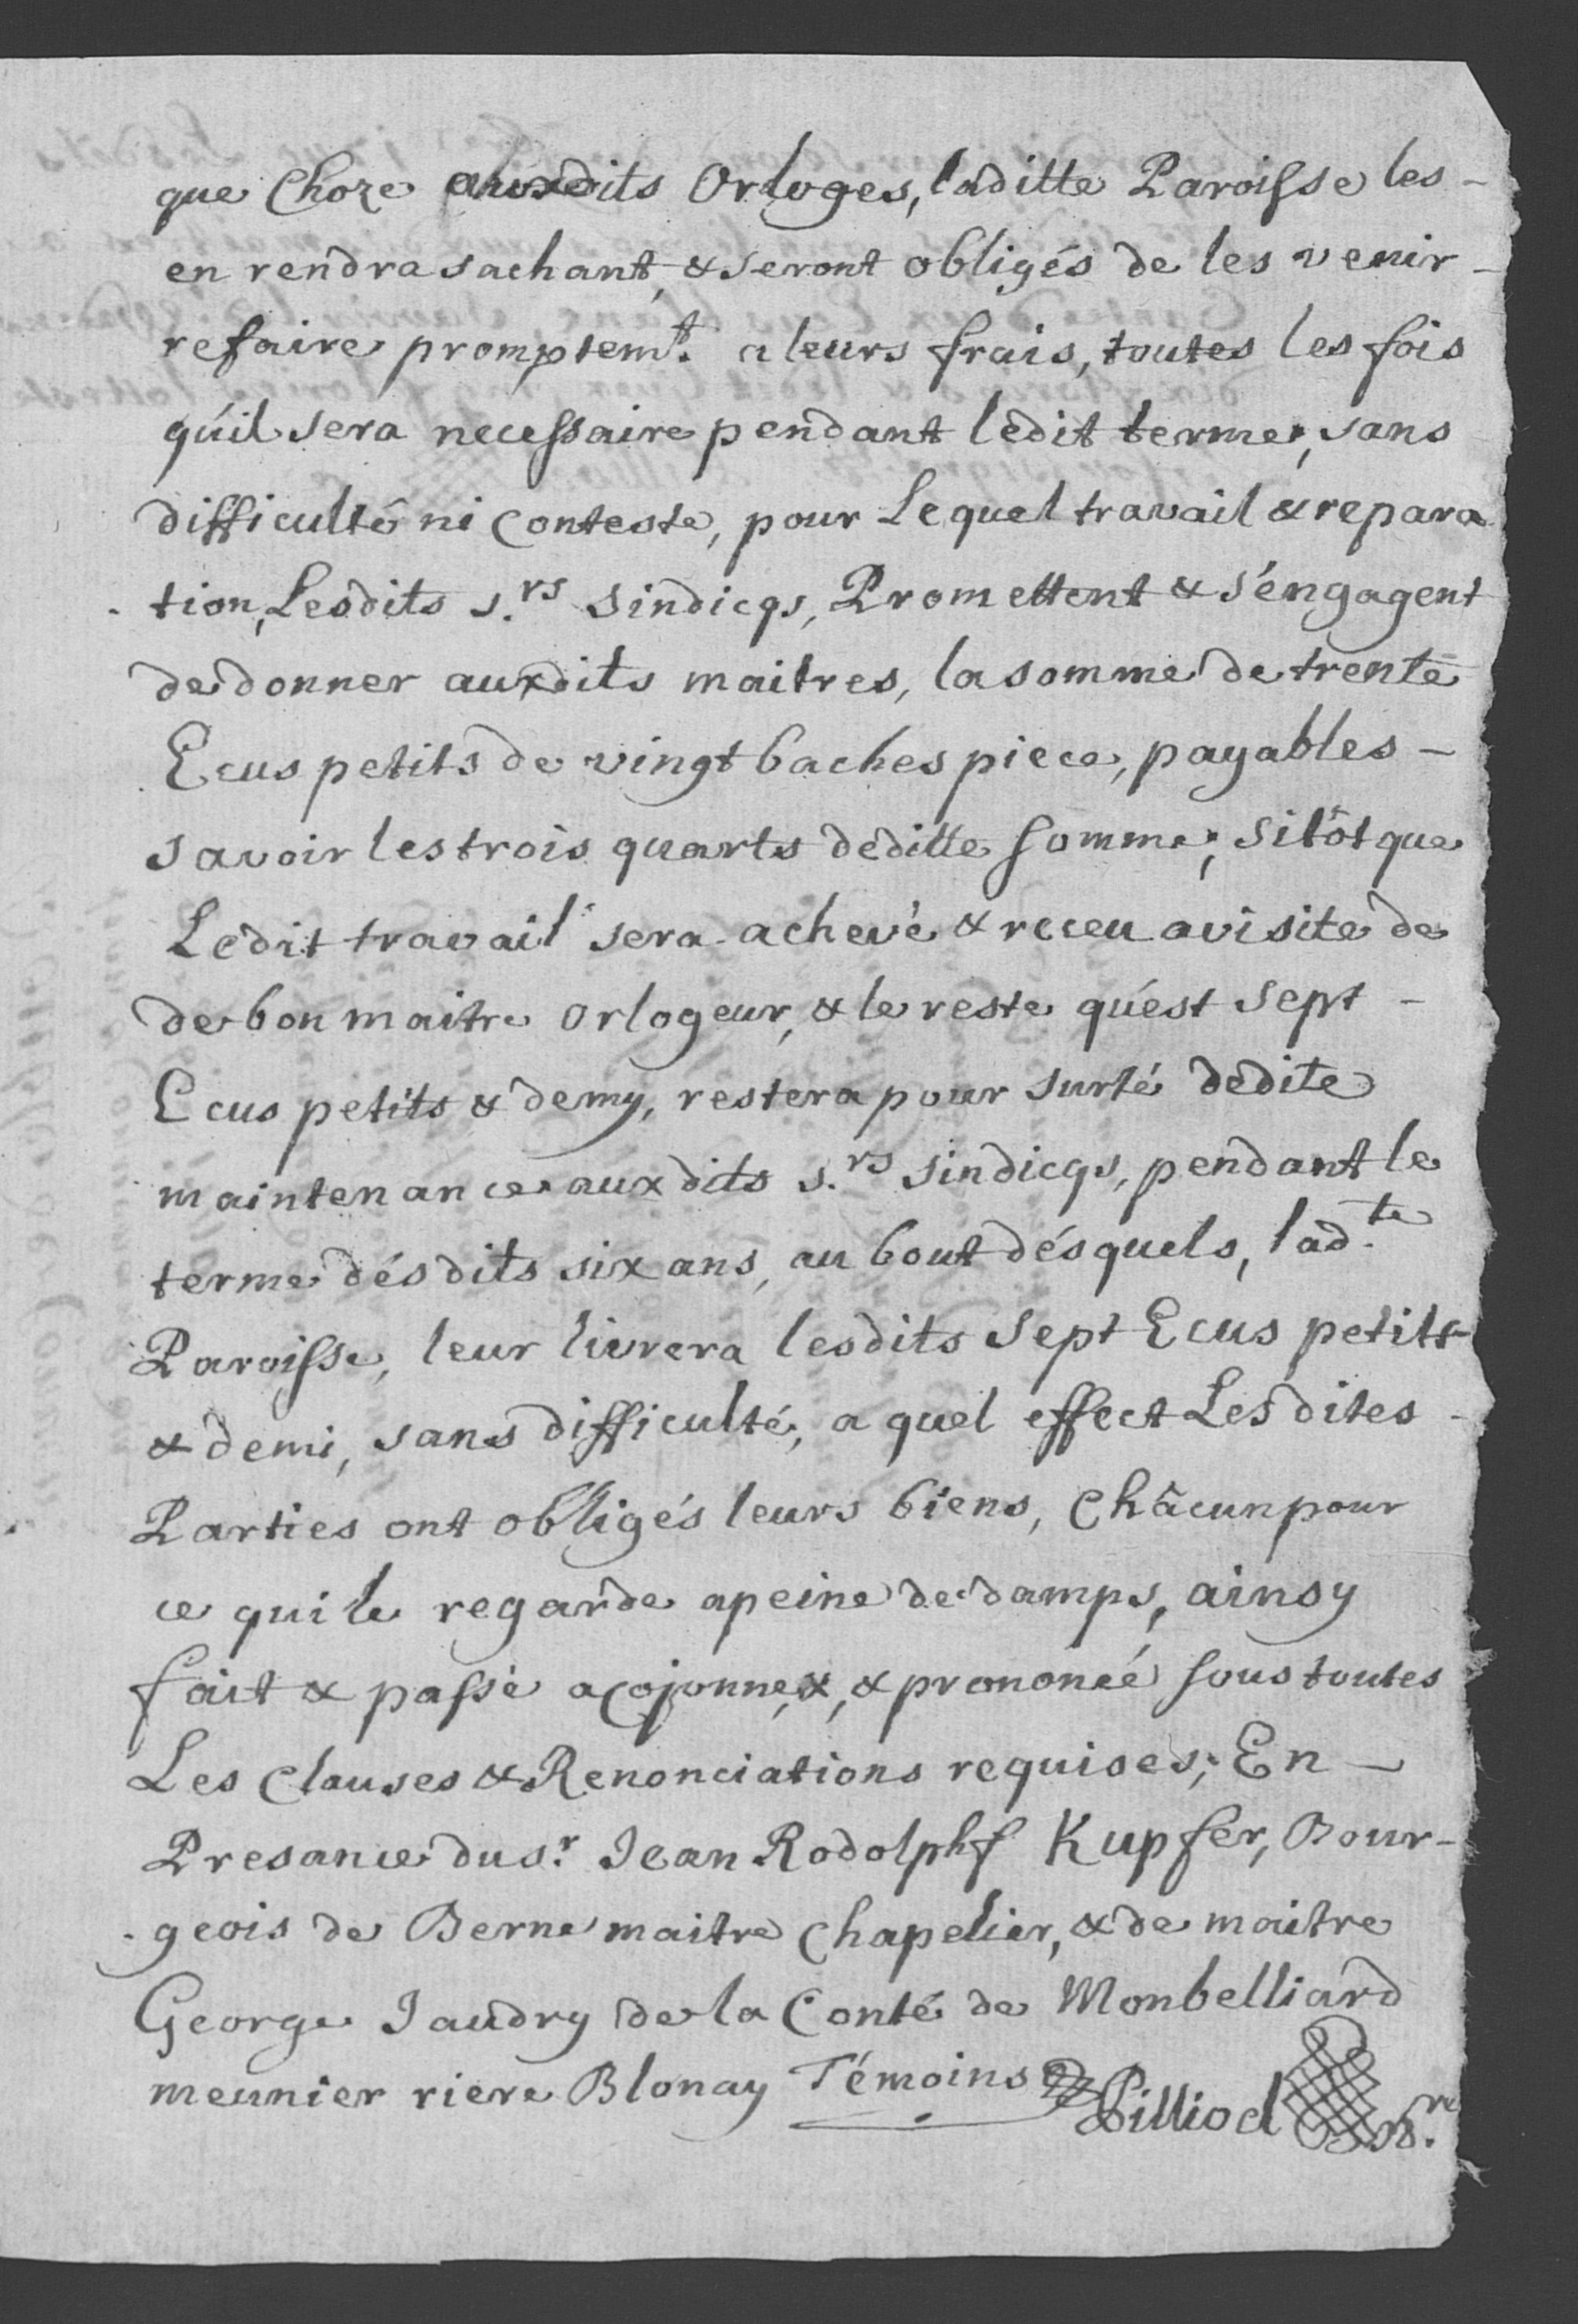 que Choze auxdits Orloges, laditte Paroisse les -
en rendra sachant, & seront obligés de les venir -
refaire promptemt. a leurs frais, toutes les fois
qu'il sera necessaire pendant ledit terme, sans
difficulté ni Conteste, pour Lequel travail & repara
tion, Lesdits s.rs sindicqs, Promettent & s'engagent
de donner auxdits maitres, la somme de trente
Ecus petits de vingt baches piece, payables -
savoir les trois quarts deditte somme, sitôt que
Ledit travail sera achevé & receu a visite de
de bon maitre orlogeur, & le reste qu'est sept -
Ecus petits & demy, restera pour surté dedite
maintenance auxdits s.rs sindicqs, pendant le
terme désdits six ans, au bout désquels, lad.te
Paroisse, leur livrera lesdits sept Ecus petits -
& demi, sans difficulté, a quel effect Lesdites -
Parties ont obligés leurs biens, Châcun pour
ce qui le regarde a peine de damps, ainsy
fait & passé a Cojonnex, & prononcé sous toutes
Les Clauses & Renonciations requises; En -
Presance du s.r Jean Rodolphf Kupfer, Bour-
geois de Berne maitre Chapelier, & de maitre
George Jaudry de la Conté de Monbelliard
meunier riere Blonay Témoins
Pilliod